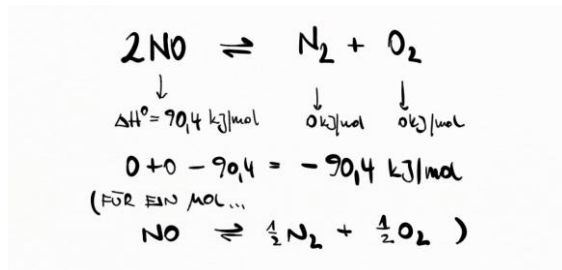 2NO ⇌ N₂ + O₂
↓ ↓ ↓
ΔH⁰ = 90,4 kJ/mol 0 kJ/mol 0 kJ/mol
0 + 0 - 90,4 = - 90,4 kJ/mol
(FÜR EIN MOL...
NO ⇌ ½ N₂ + ½ O₂ )